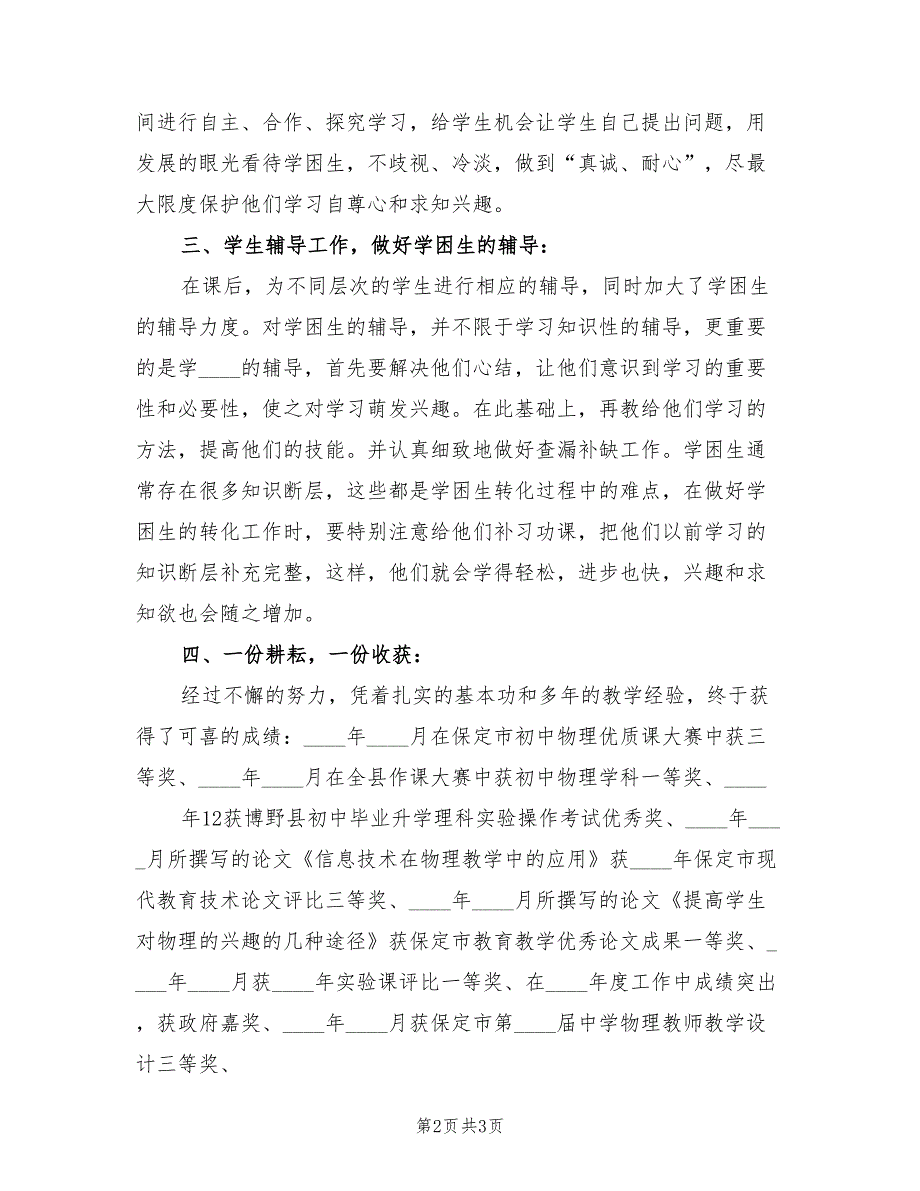 间进行自主、合作、探究学习，给学生机会让学生自己提出问题，用
发展的眼光看待学困生，不歧视、冷淡，做到“真诚、耐心”，尽最
大限度保护他们学习自尊心和求知兴趣。
三、学生辅导工作，做好学困生的辅导：
在课后，为不同层次的学生进行相应的辅导，同时加大了学困生
的辅导力度。对学困生的辅导，并不限于学习知识性的辅导，更重要
的是学____的辅导，首先要解决他们心结，让他们意识到学习的重要
性和必要性，使之对学习萌发兴趣。在此基础上，再教给他们学习的
方法，提高他们的技能。并认真细致地做好查漏补缺工作。学困生通
常存在很多知识断层，这些都是学困生转化过程中的难点，在做好学
困生的转化工作时，要特别注意给他们补习功课，把他们以前学习的
知识断层补充完整，这样，他们就会学得轻松，进步也快，兴趣和求
知欲也会随之增加。
四、一份耕耘，一份收获：
经过不懈的努力，凭着扎实的基本功和多年的教学经验，终于获
得了可喜的成绩：____年____月在保定市初中物理优质课大赛中获三
等奖、____年____月在全县作课大赛中获初中物理学科一等奖、____
年12获博野县初中毕业升学理科实验操作考试优秀奖、____年___
_月所撰写的论文《信息技术在物理教学中的应用》获____年保定市现
代教育技术论文评比三等奖、____年____月所撰写的论文《提高学生
对物理的兴趣的几种途径》获保定市教育教学优秀论文成果一等奖、_
___年____月获____年实验课评比一等奖、在____年度工作中成绩突出
，获政府嘉奖、____年____月获保定市第____届中学物理教师教学设
计三等奖、
第2页共3页